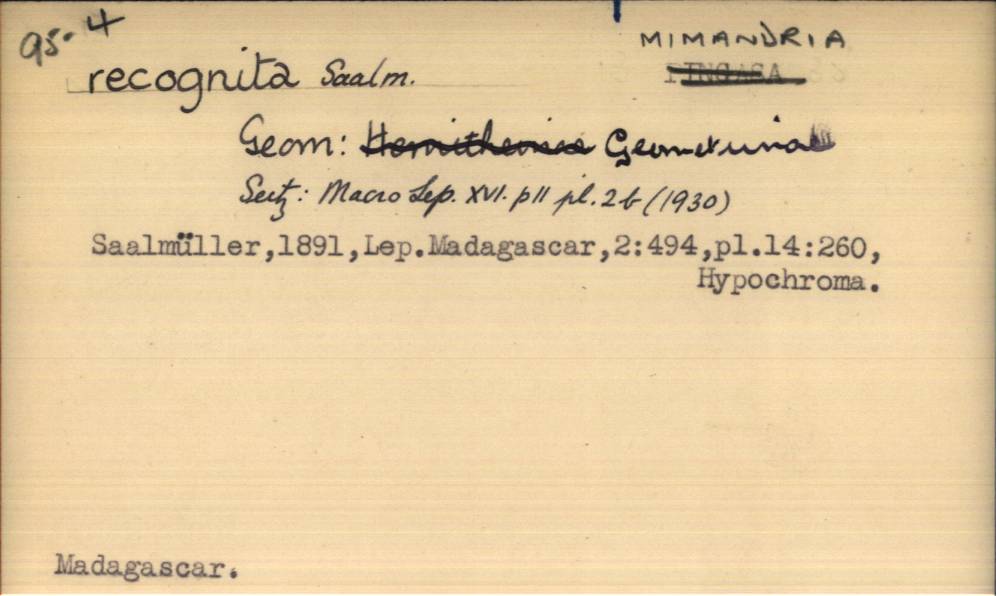 95.4
MIMANDRIA
recognita Saalm.
PINGASA
Geom: Hemitheinae Geometrina
Seitz: Macro Lep. XVI. p11 pl. 2b (1930)
Saalmüller,1891,Lep.Madagascar,2:494,pl.14:260,
Hypochroma.
Madagascar.